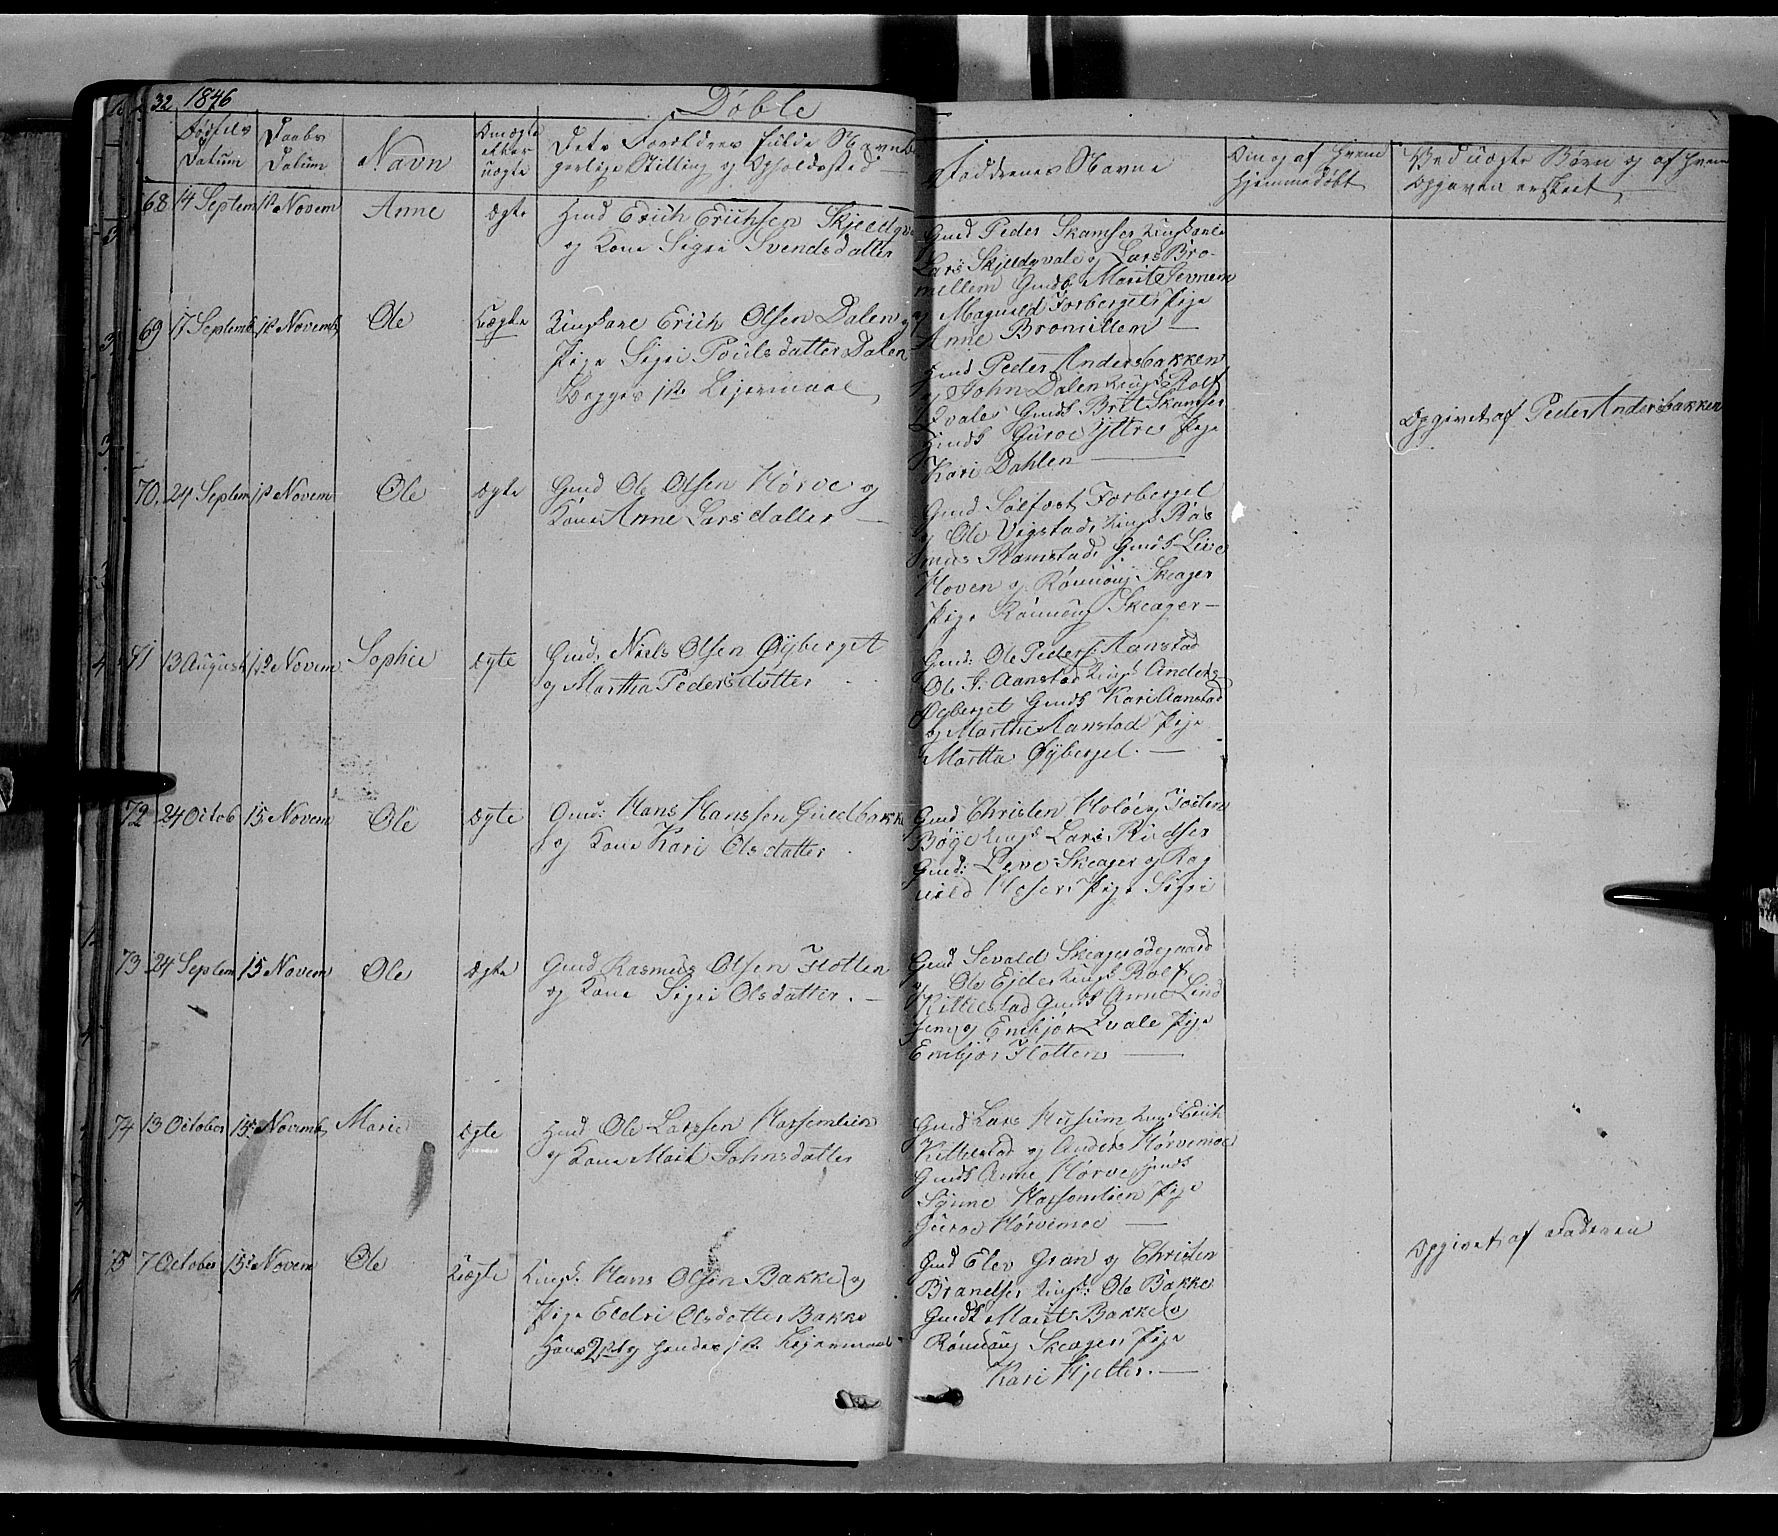 32 1846
Døbte
Fødsels Datum
Daabs Datum
Navn
Om ægte eller uægte
Dets Forældres fulde Navn
gerlige Stilling og Opholdssted
Faddrenes Navne
Om og af hvem
hjemmedøbt
Ved uægte Børn og af hvem
Opgaven er skeet
68 14 Septem 1st Novem Anne ægte Huusd Erich Erichsen Skjeldqva
og Kone Sigri Svendsdatter
Gmd Peder Skamser Ungkarle
Lars Skjeldqvale og Lars Bro-
millem Gmdk Marit Jevnem
og Magnild Forberget Pige
Anne Bromillem
69 17 Septemb 1st Novemb Ole Uægte Ungkarl Erich Olsen Dalen og
Pige Sigri Poulsdatter Dalen
Begges 1ste Leiermaal
Huusd Peder Andersbakken
og John Dalen Ungk Rolf
Qvale Gmdk Brit Skamser
Huusk Guroe Yttrie Pige
Kari Dahlen
Opgivet af Peder Andersbakken
70 24 Septem 1st Novem Ole ægte Gmd Ole Olsen Hörve og
Kone Anne Larsdatter
Gmd Solfest Forberget
og Ole Vigstad Ungk Ras
mus Ramstad Gmdk Live
Hoven og Rönnoug Skeager
Pige Rönnoug Skeager
71 13 August 1st Novem Sophie ægte Gmd: Niels Olsen Øyberget
og Martha Pedersdatter
Gmd: Ole Peders: Aanstad
Ole J: Aanstad Ungk Anders
Øyberget Gmdk Kari Aanstad
og Marthe Aanstad Pige
Martha Øyberget.
72 24 Octob 15 Novem Ole ægte Gmd: Hans Hanssen Guldbakke
og Kone Kari Olsdatter
Gmd Christen Holöe og Josten
Böye Ungk Lars Riidser
Gmd: Leve Skeager og Rag
nild Moser Pige Sigri
73 24 Septem 15 Novem Ole ægte Gmd Rasmus Olsen Flotten
og Kone Sigri Olsdatter.
Gmd Sevald Skeagerödegaard
og Ole Ejde Ungk Rolf
Kittelstad Gmdk Anne Lind
og Embjör Qvale Pige
Embjör Flotten
74 13 October 15. Novemb Marie ægte Huusd Ole Larssen Horsemlien
og Kone Marit Johnsdatter
Gmd Lars Husum Ungk Erich
Kittelstad og Anders Hörvemoe
Gmdk Anne Hörve Gmdk
Synne Horsemlien Pige
Guroe Hörvemoe
75 7 October 15: Novem Ole Uægte Ungk: Hans Olsen Bakke og
Pige Eldri Olsdatter Bakke
Hans 2det og hendes 1ste Leiermaal
Gmd Elev Gran og Christen
Brandser Ungk: Ole Bakke
Gmdk Marit Bakke og
Rönnoug Skeager Pige
Kari Hjelter.
Opgivet af Faderen